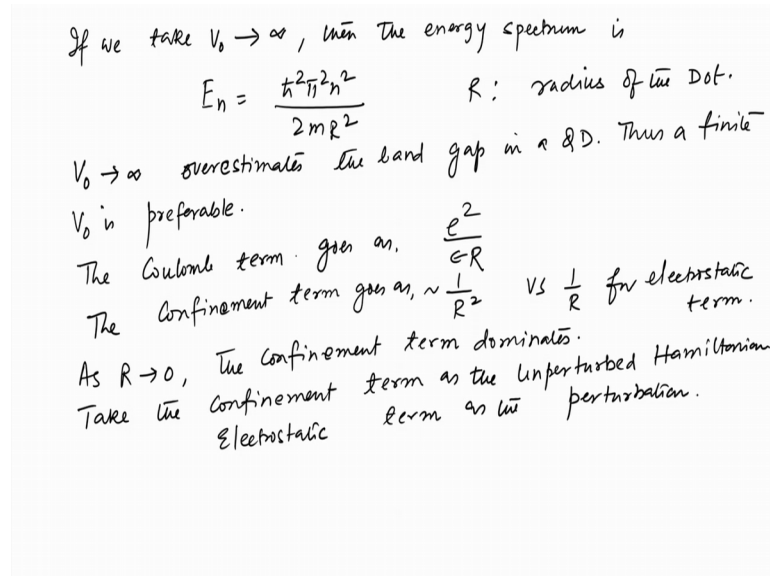 If we take V₀ → ∞, then the energy spectrum is
Eₙ = ħ²π²n² / 2mR²   R: radius of the Dot.
V₀ → ∞ overestimates the band gap in a QD. Thus a finite
V₀ is preferable.
The Coulomb term goes as, e² / ϵR
The Confinement term goes as, ~ 1/R² vs 1/R for electrostatic
term.
As R → 0, The confinement term dominates.
Take the confinement term as the Unperturbed Hamiltonian
Electrostatic term as the perturbation.